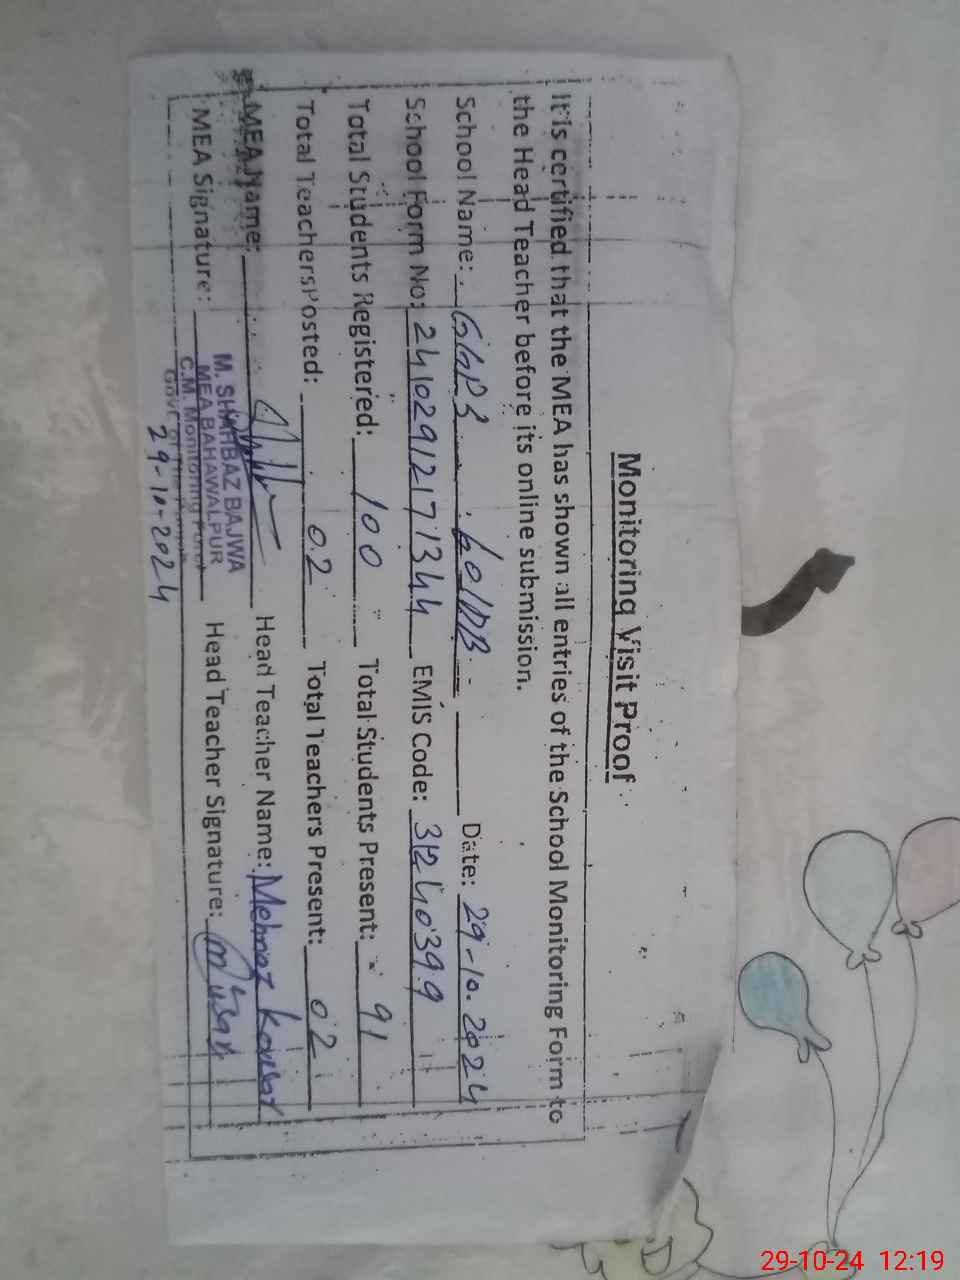 Monitoring Visit Proof
It is certified that the MEA has shown all entries of the School Monitoring Form to
the Head Teacher before its online submission.
School Name: GGPS 60/DB Date: 29-10-2024
School Form No: 2410291217134 4 EMIS Code: 31240399
Total Students Registered: 100 Total Students Present: 91
Total Teachers Posted: 02 Total Teachers Present: 02
MEA Name: Head Teacher Name: Mehnaz Kousar
MEA Signature: Head Teacher Signature:
M. SHAHBAZ BAJWA
MEA BAHAWALPUR
C.M. Monitoring Force
Govt. of the Punjab
29-10-2024
29-10-24 12:19